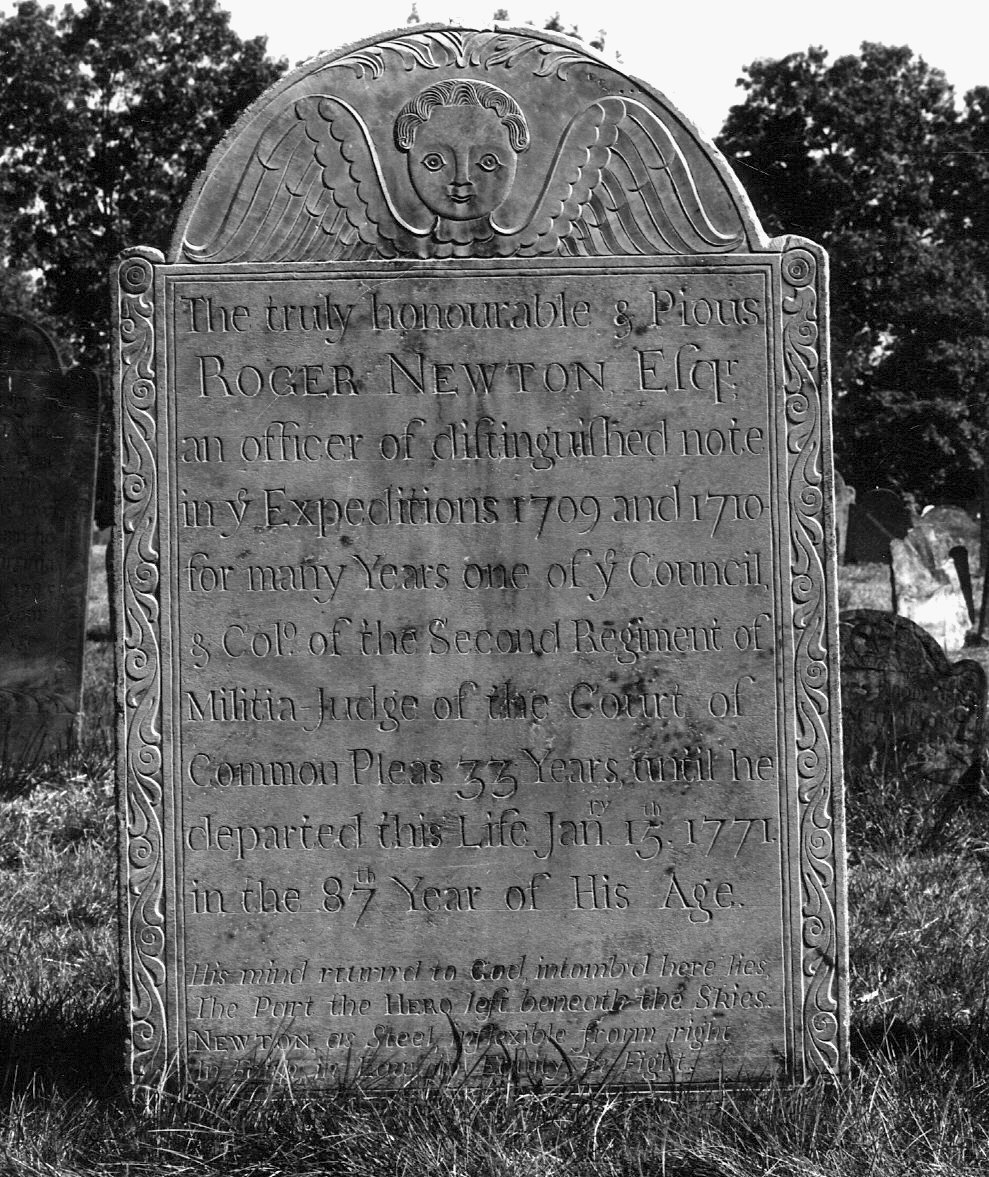 The truly honourable & Pious
ROGER NEWTON Eſqr.
an officer of diſtinguiſhed note
in yͤ Expeditions 1709 and 1710.
for many Years one of yͤ Council,
& Colo. of the Second Regiment of
Militia Judge of the Court of
Common Pleas 33 Years, until he
departed this Life Janry. 15th. 1771.
in the 87th Year of His Age.
His mind returnd to God, intomb'd here lies,
The Part the HERO left beneath the Skies.
NEWTON as Steel, inflexible from right
in Law, in Equity, in Fight.